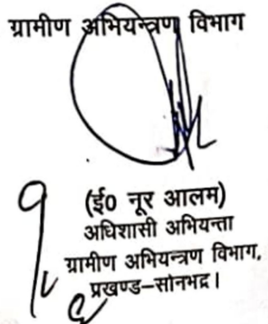 ग्रामीण अभियन्त्रण विभाग
(ई0 नूर आलम)
अधिशासी अभियन्ता
ग्रामीण अभियन्त्रण विभाग,
प्रखण्ड-सोनभद्र।